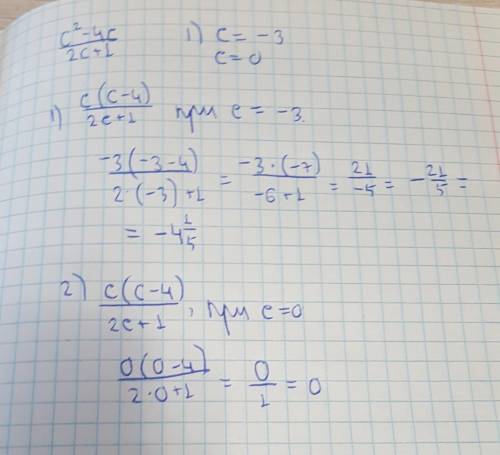 (c² - 4c)/(2c+1) 1) c = -3
c = 0
1) c(c-4)/(2c+1) при c = -3.
-3(-3-4)/(2·(-3)+1) = -3·(-7)/(-6+1) = 21/-5 = -21/5 =
= -4 1/5
2) c(c-4)/(2c+1), при c=0
0(0-4)/(2·0+1) = 0/1 = 0